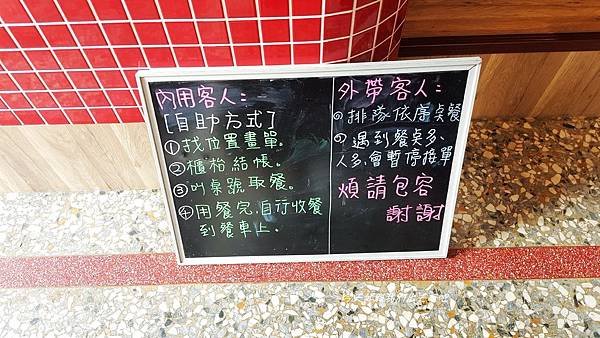 內用客人：
[自助方式]
①找位置畫單。
②櫃枱結帳。
③叫桌號取餐。
④用餐完,自行收餐
到餐車上.
外帶客人：
①排隊依序點餐
②遇到餐點多、
人多,會暫停接單
煩請包容
謝謝